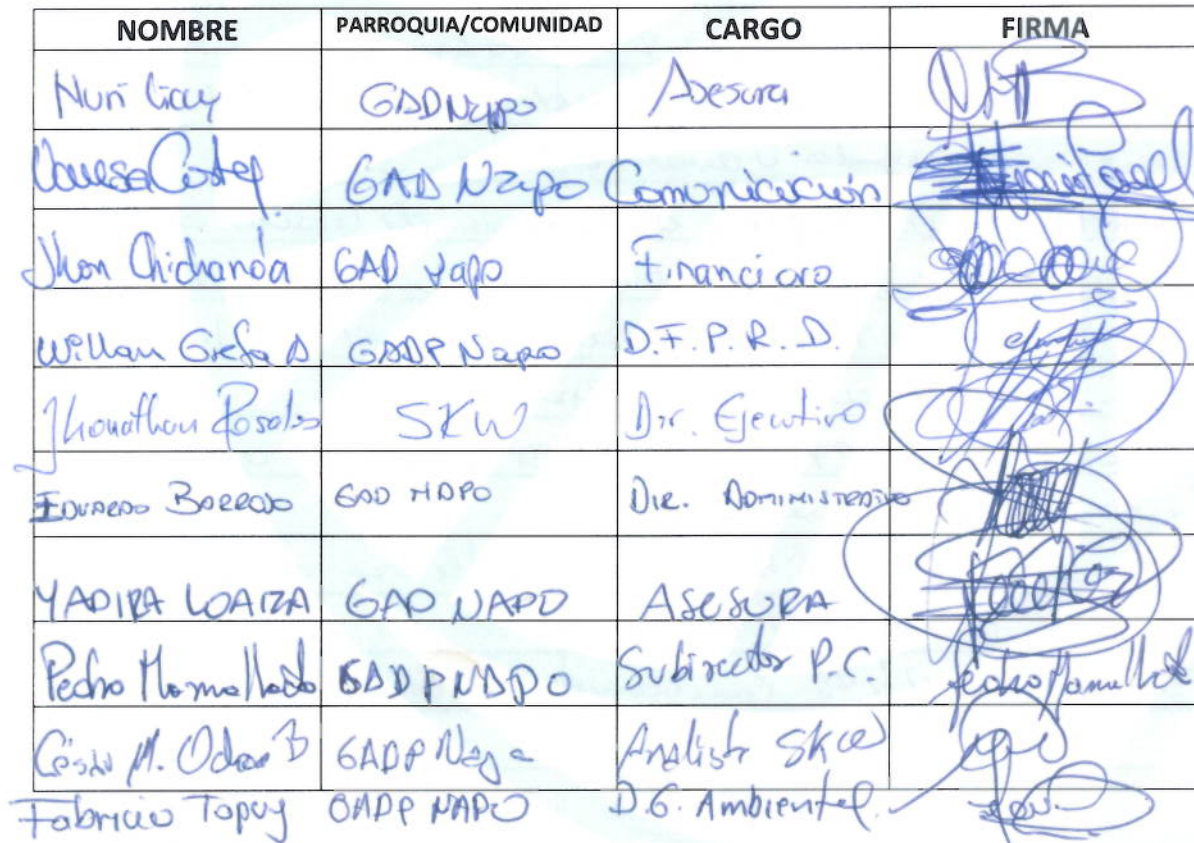 NOMBRE PARROQUIA/COMUNIDAD CARGO FIRMA
Nuri GADNapo Asesora
Vanesa GAD Napo Comunicación
Jhon Chichanda GAD Napo Financiero
Willan Grefa A GADP Napo D.F.P.R.D.
Jhonathan Rosales SKW Dir. Ejecutivo
EDUARDO GAD NAPO DIR. ADMINISTRATIVO
YADIRA LOAIZA GAD NAPO ASESORA
Pedro GADPNAPO Subirector P.C.
César M. GADP Napo Analista SKW
Fabricio Tapuy GADP NAPO D.G. Ambiental.